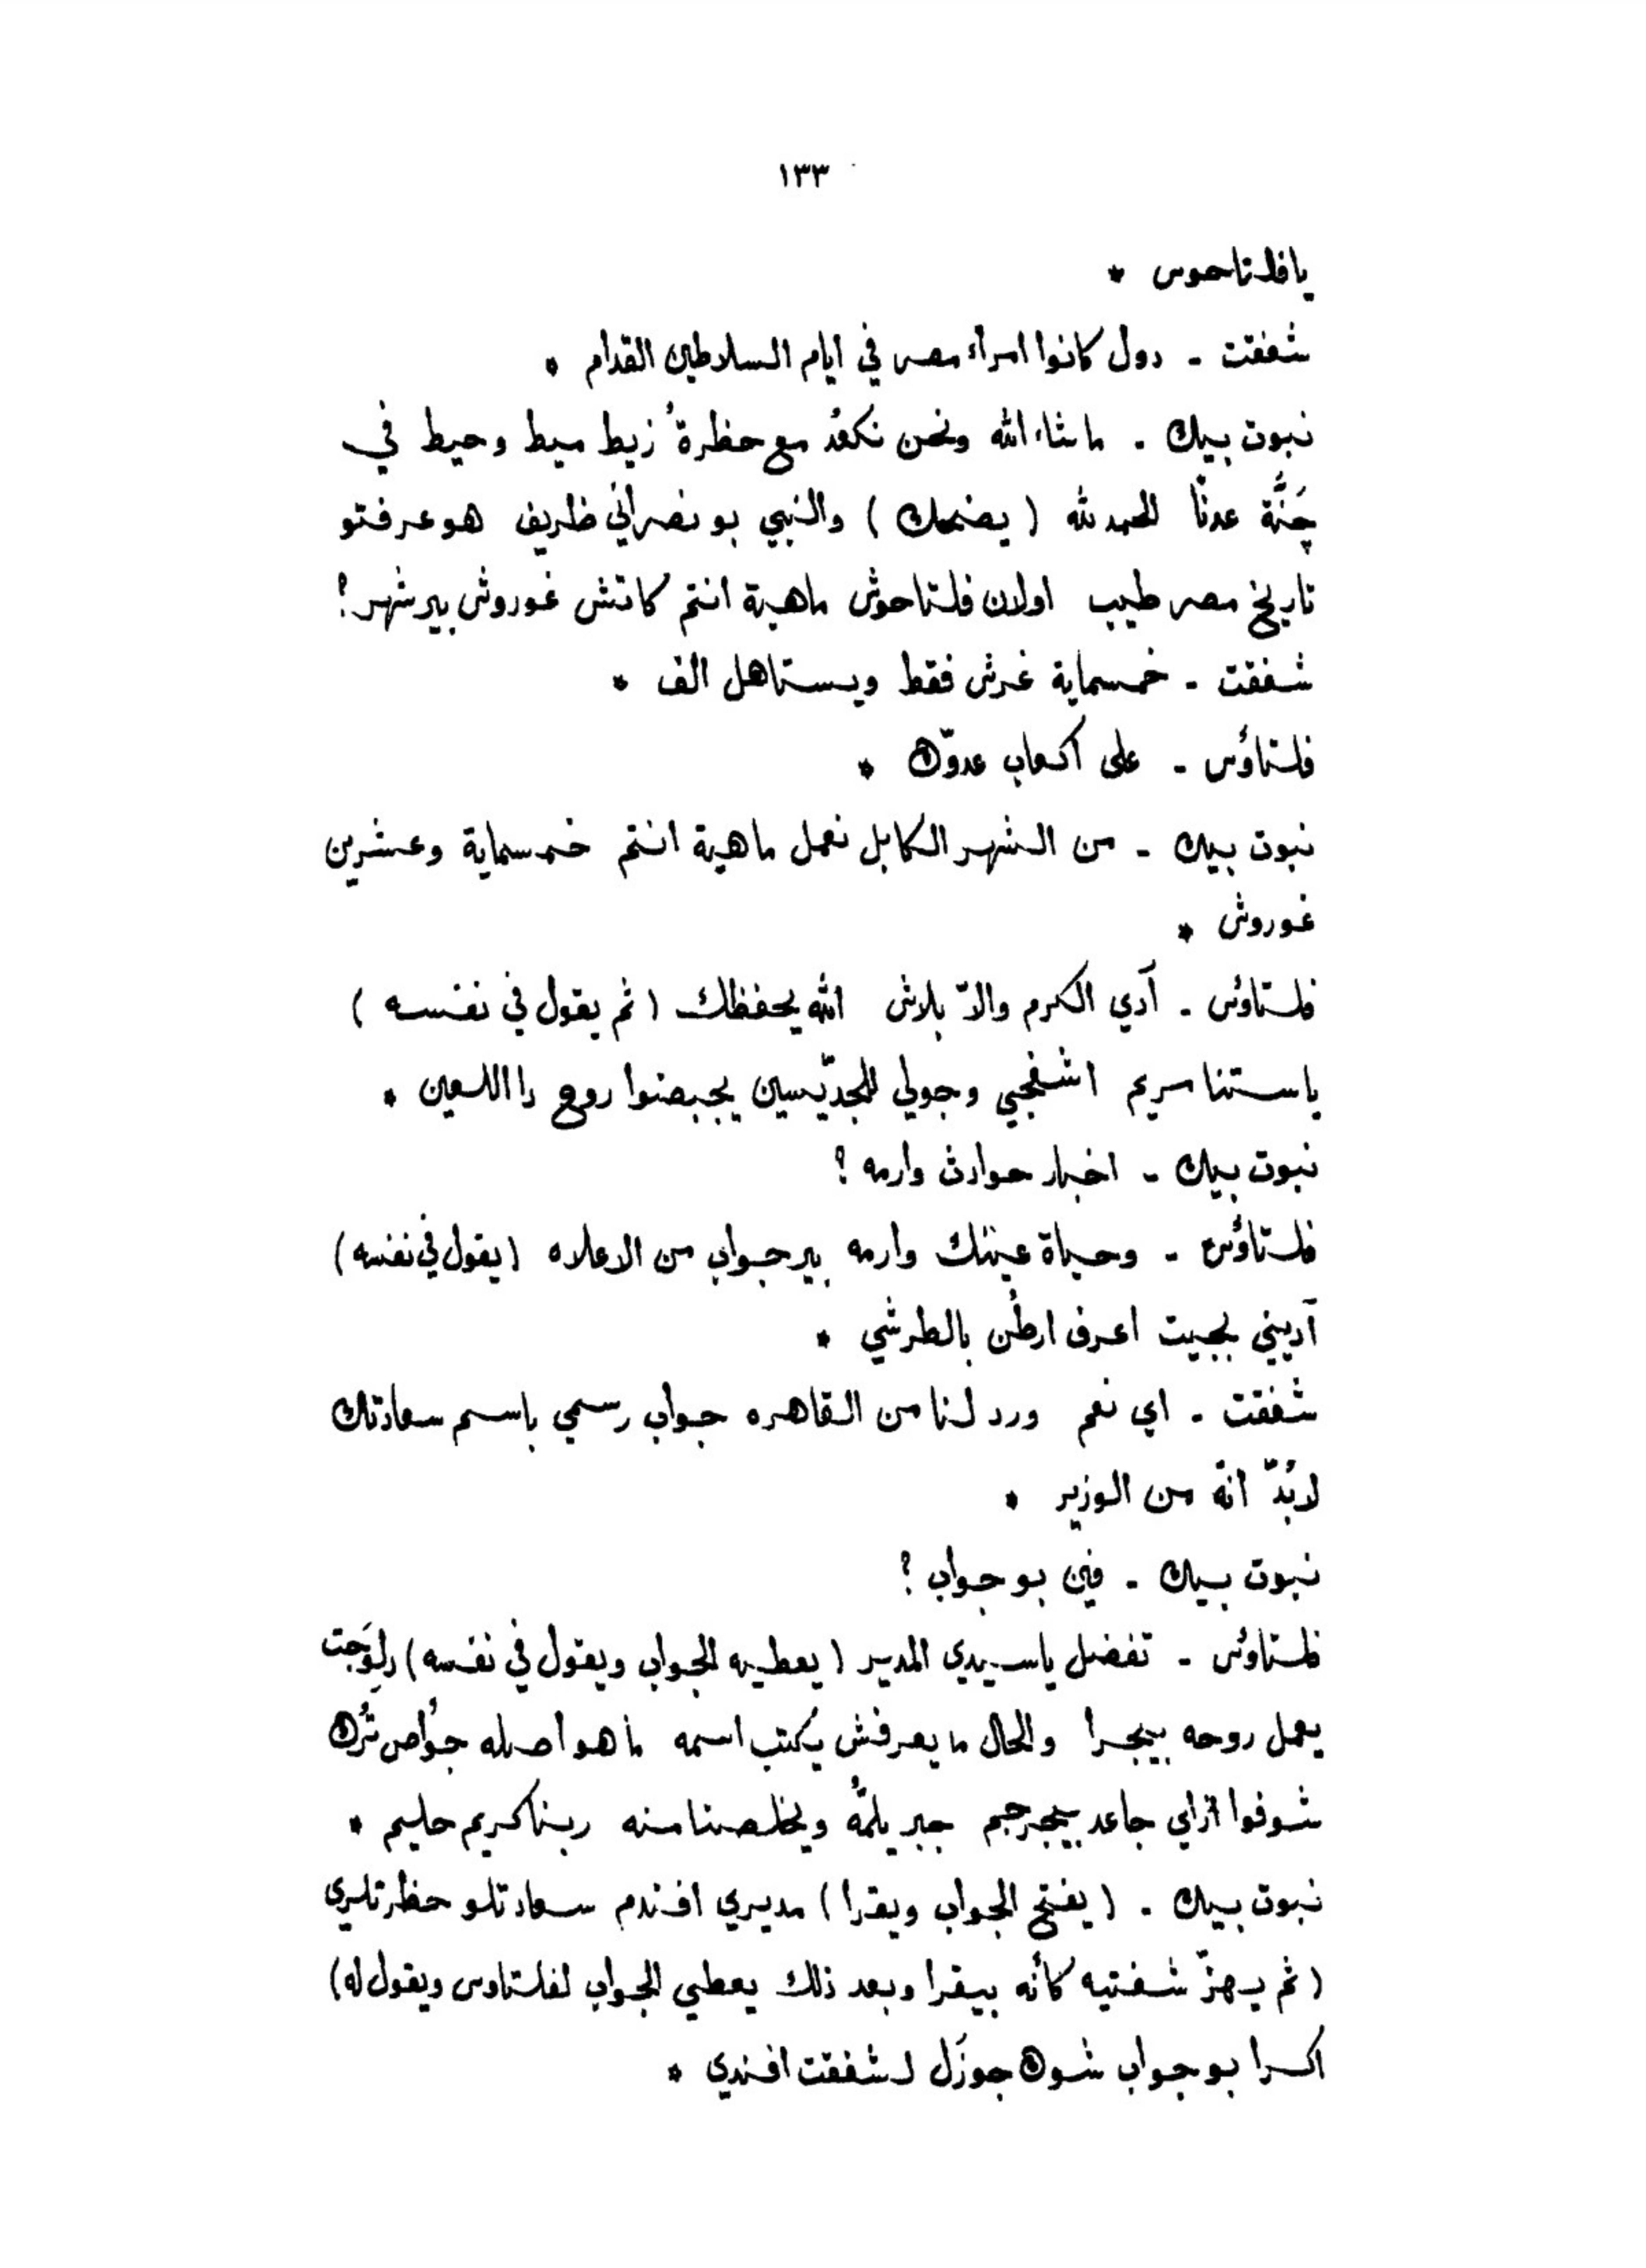 ١٣٣
يا فلتاحوس *
شفقت - دول كانوا امرآء مصر في ايام السلاطين القدام *
نبوت بيك - ما شاء الله ونحن نكعُد مع حظرةُ زيط ميط وحيط في
جَنَّة عدنًا الحمد لله ( يضحك ) والنبي بو نصراني ظريف هو عرفتو
تاريخ مصر طيب اولان فلتاحوش ماهية انتم كاتش غوروش بير شهر ؟
شفقت - خمسماية غرش فقط ويستاهل الف *
فلتاؤس - على اكعاب عدوّك *
نبوت بيك - من الشهر الكابل نعمل ماهية انتم خمسماية وعشرين
غوروش *
فلتاؤس - آدي الكرم والاّ بلاش الله يحفظك ( ثم يقول في نفسه )
يا ستنا مريم اشفجي وجولي للجدّيسين يجبضوا روح دا اللعين *
نبوت بيك - اخبار حوادث وارمه ؟
فلتاؤس - وحياة عينك وارمه بير جواب من الاعلاه ( يقول في نفسه )
آديني بجيت اعرف ارطُن بالطرشي *
شفقت - اي نعم ورد لنا من القاهره جواب رسمي باسم سعادتك
لابُدّ انّه من الوزير *
نبوت بيك - فين بو جواب ؟
فلتاؤس - تفضل يا سيدي المدير ( يعطيه الجواب ويقول في نفسه ) دِلوَجت
يعمل روحه بيجرا والحال ما يعرفش يكتب اسمه ما هو اصله جوّاص تُرك
شوفوا ازاي جاعد بيجرجم جبر يلمُّه ويخلصنا منه ربنا كريم حليم *
نبوت بيك - ( يفتح الجواب ويقرا ) مديري افندم سعادتلو حظرتلري
( ثم يهزّ شفتيه كأنه بيقرا وبعد ذلك يعطي الجواب لفلتاوس ويقول له )
اكرا بو جواب شوك جوزَل لشفقت افندي *